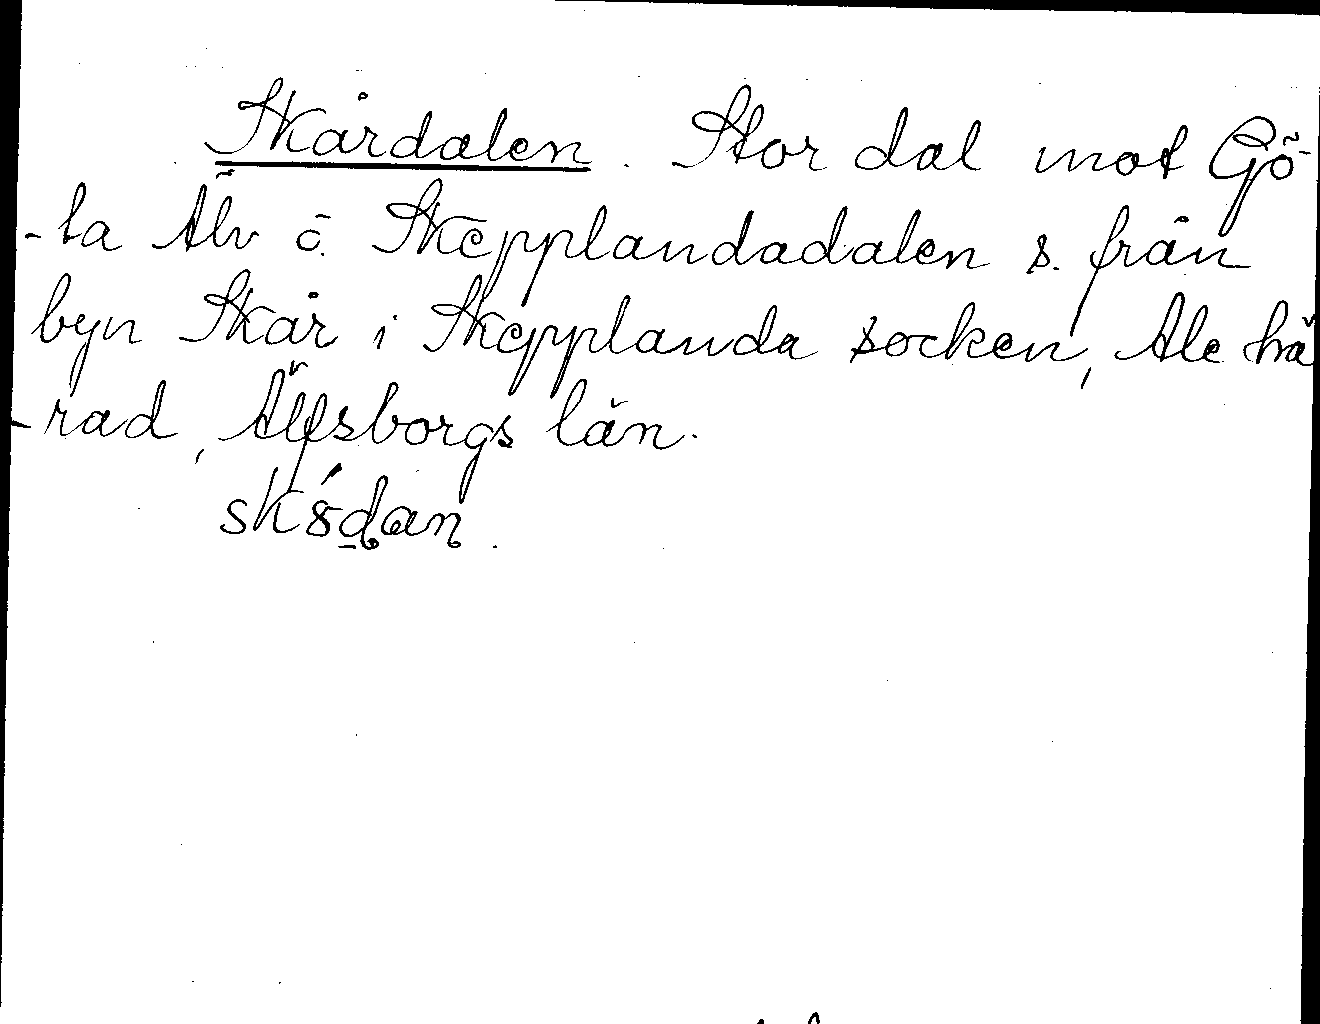 Skårdalen. Stor dal mot Gö-
-ta Älv o. Skepplandadalen s. från
byn Skår i Skepplanda socken, Ale hä
-rad, Älfsborgs län.